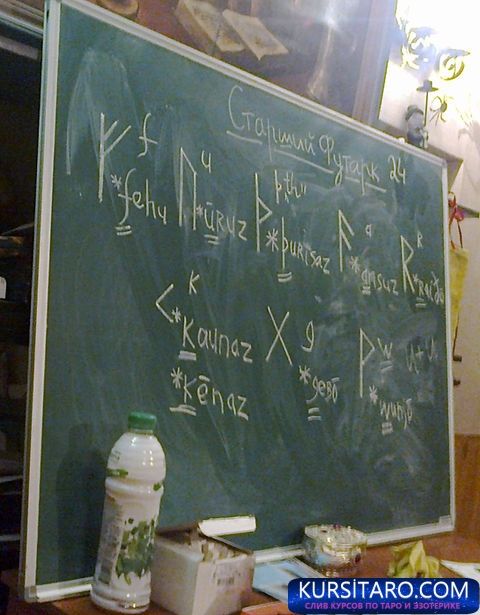 Старший Футарк 24
ᚠ f ᚢ u ᚦ þ,"th" ᚨ a ᚱ R
*fehu *ūruz *þurisaz *ansuz *Raiðo
ᚲ K ᚷ g ᚹ w
*Kaunaz *gebō *wunjō
*Kēnaz
KURSITARO.COM
СЛИВ КУРСОВ ПО ТАРО И ЭЗОТЕРИКЕ